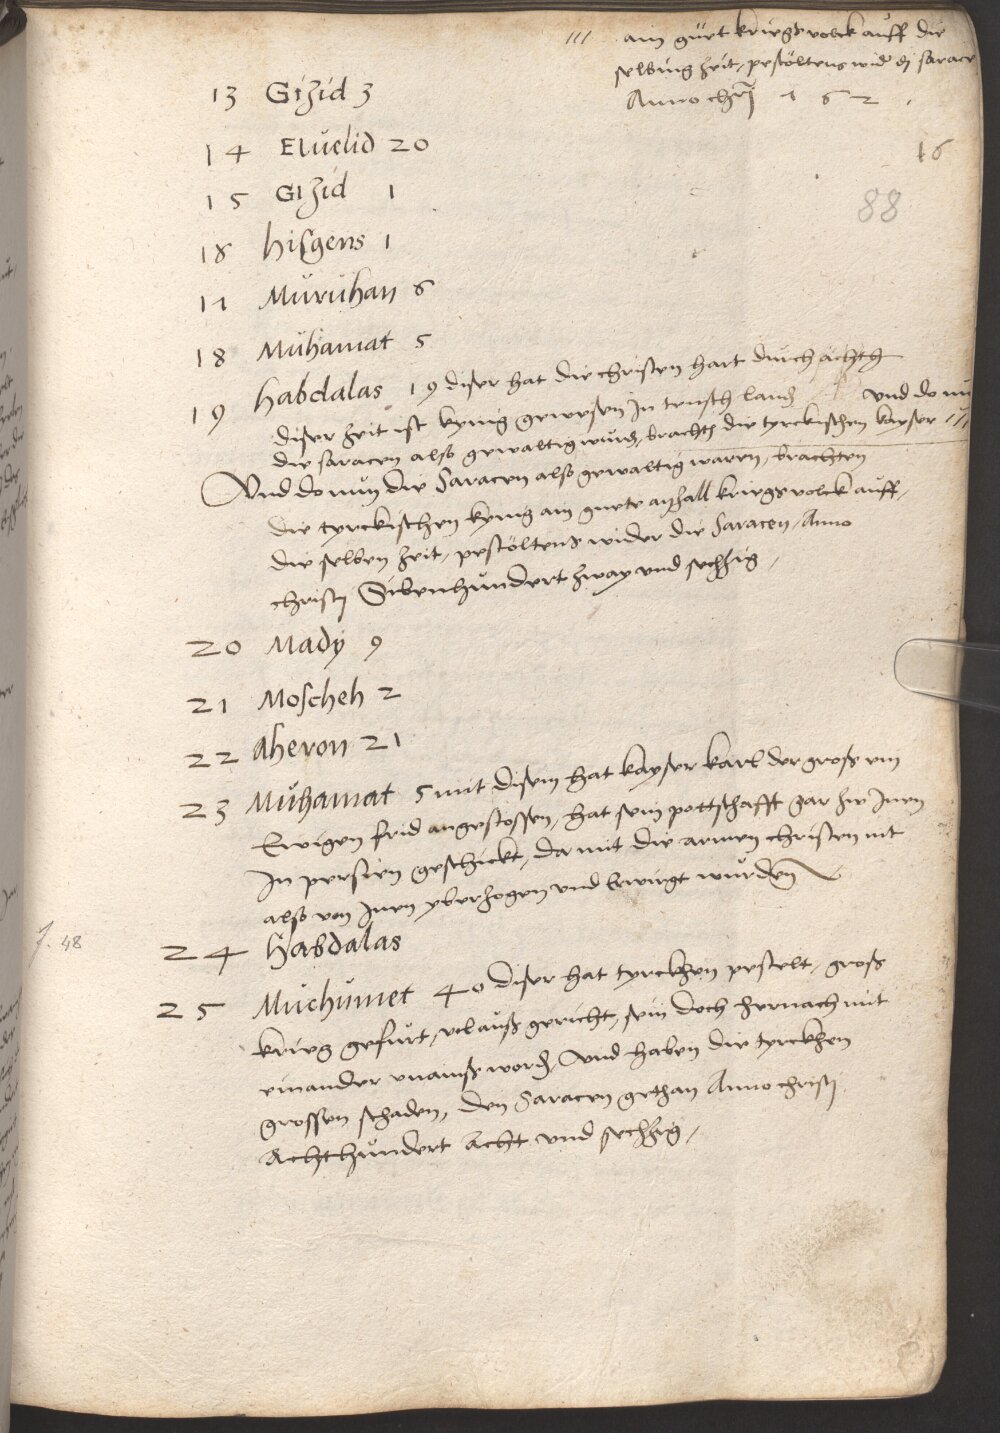 /// ain guet kriegsvolck auff die
selbing zeit, pestöltens wid' di sarace
Anno chri 7 6 2 .
16
88
13 Gizid 3
14 Eluelid 20
15 Gizid 1
16 hisgens 1
17 Muruhan 6
18 Muhamat 5
19 habdalas 19 diser hat die christen hart durch acht
diser zeit ist kynig gewesen In teusch land und do nu
die saracen also gewaltig wurd, brachte die tyrckischen kayser ///
Und do nun die Saracen also gewaltig waren, brachten
die tyrckischen kynig ain guete anzall kriegsvolck auff,
die selben zeit, pestöltens wider die Saracen, Anno
christi Sibenhundert zway und sechzig,
20 Mady 9
21 Moscheh 2
22 Aheron 21
23 Muhamat 5 mit disem hat kayser karl der groß ein
Ewigen frid angestossen, hat sein pottschafft gar zw Inen
In persien geschickt, da mit die armen christen nit
also von Inen yberzogen und erwirgt wurden
24 habdalas
f. 48
25 Muchumet 40 diser hat tyrckhen pestelt, groß
krieg gefurt, vil auß gericht, sein doch hernach mit
einander unainß word, Und haben die tyrckhen
grossen schaden, den Saracen gethan Anno christi
Achthundert Acht und sechzig,